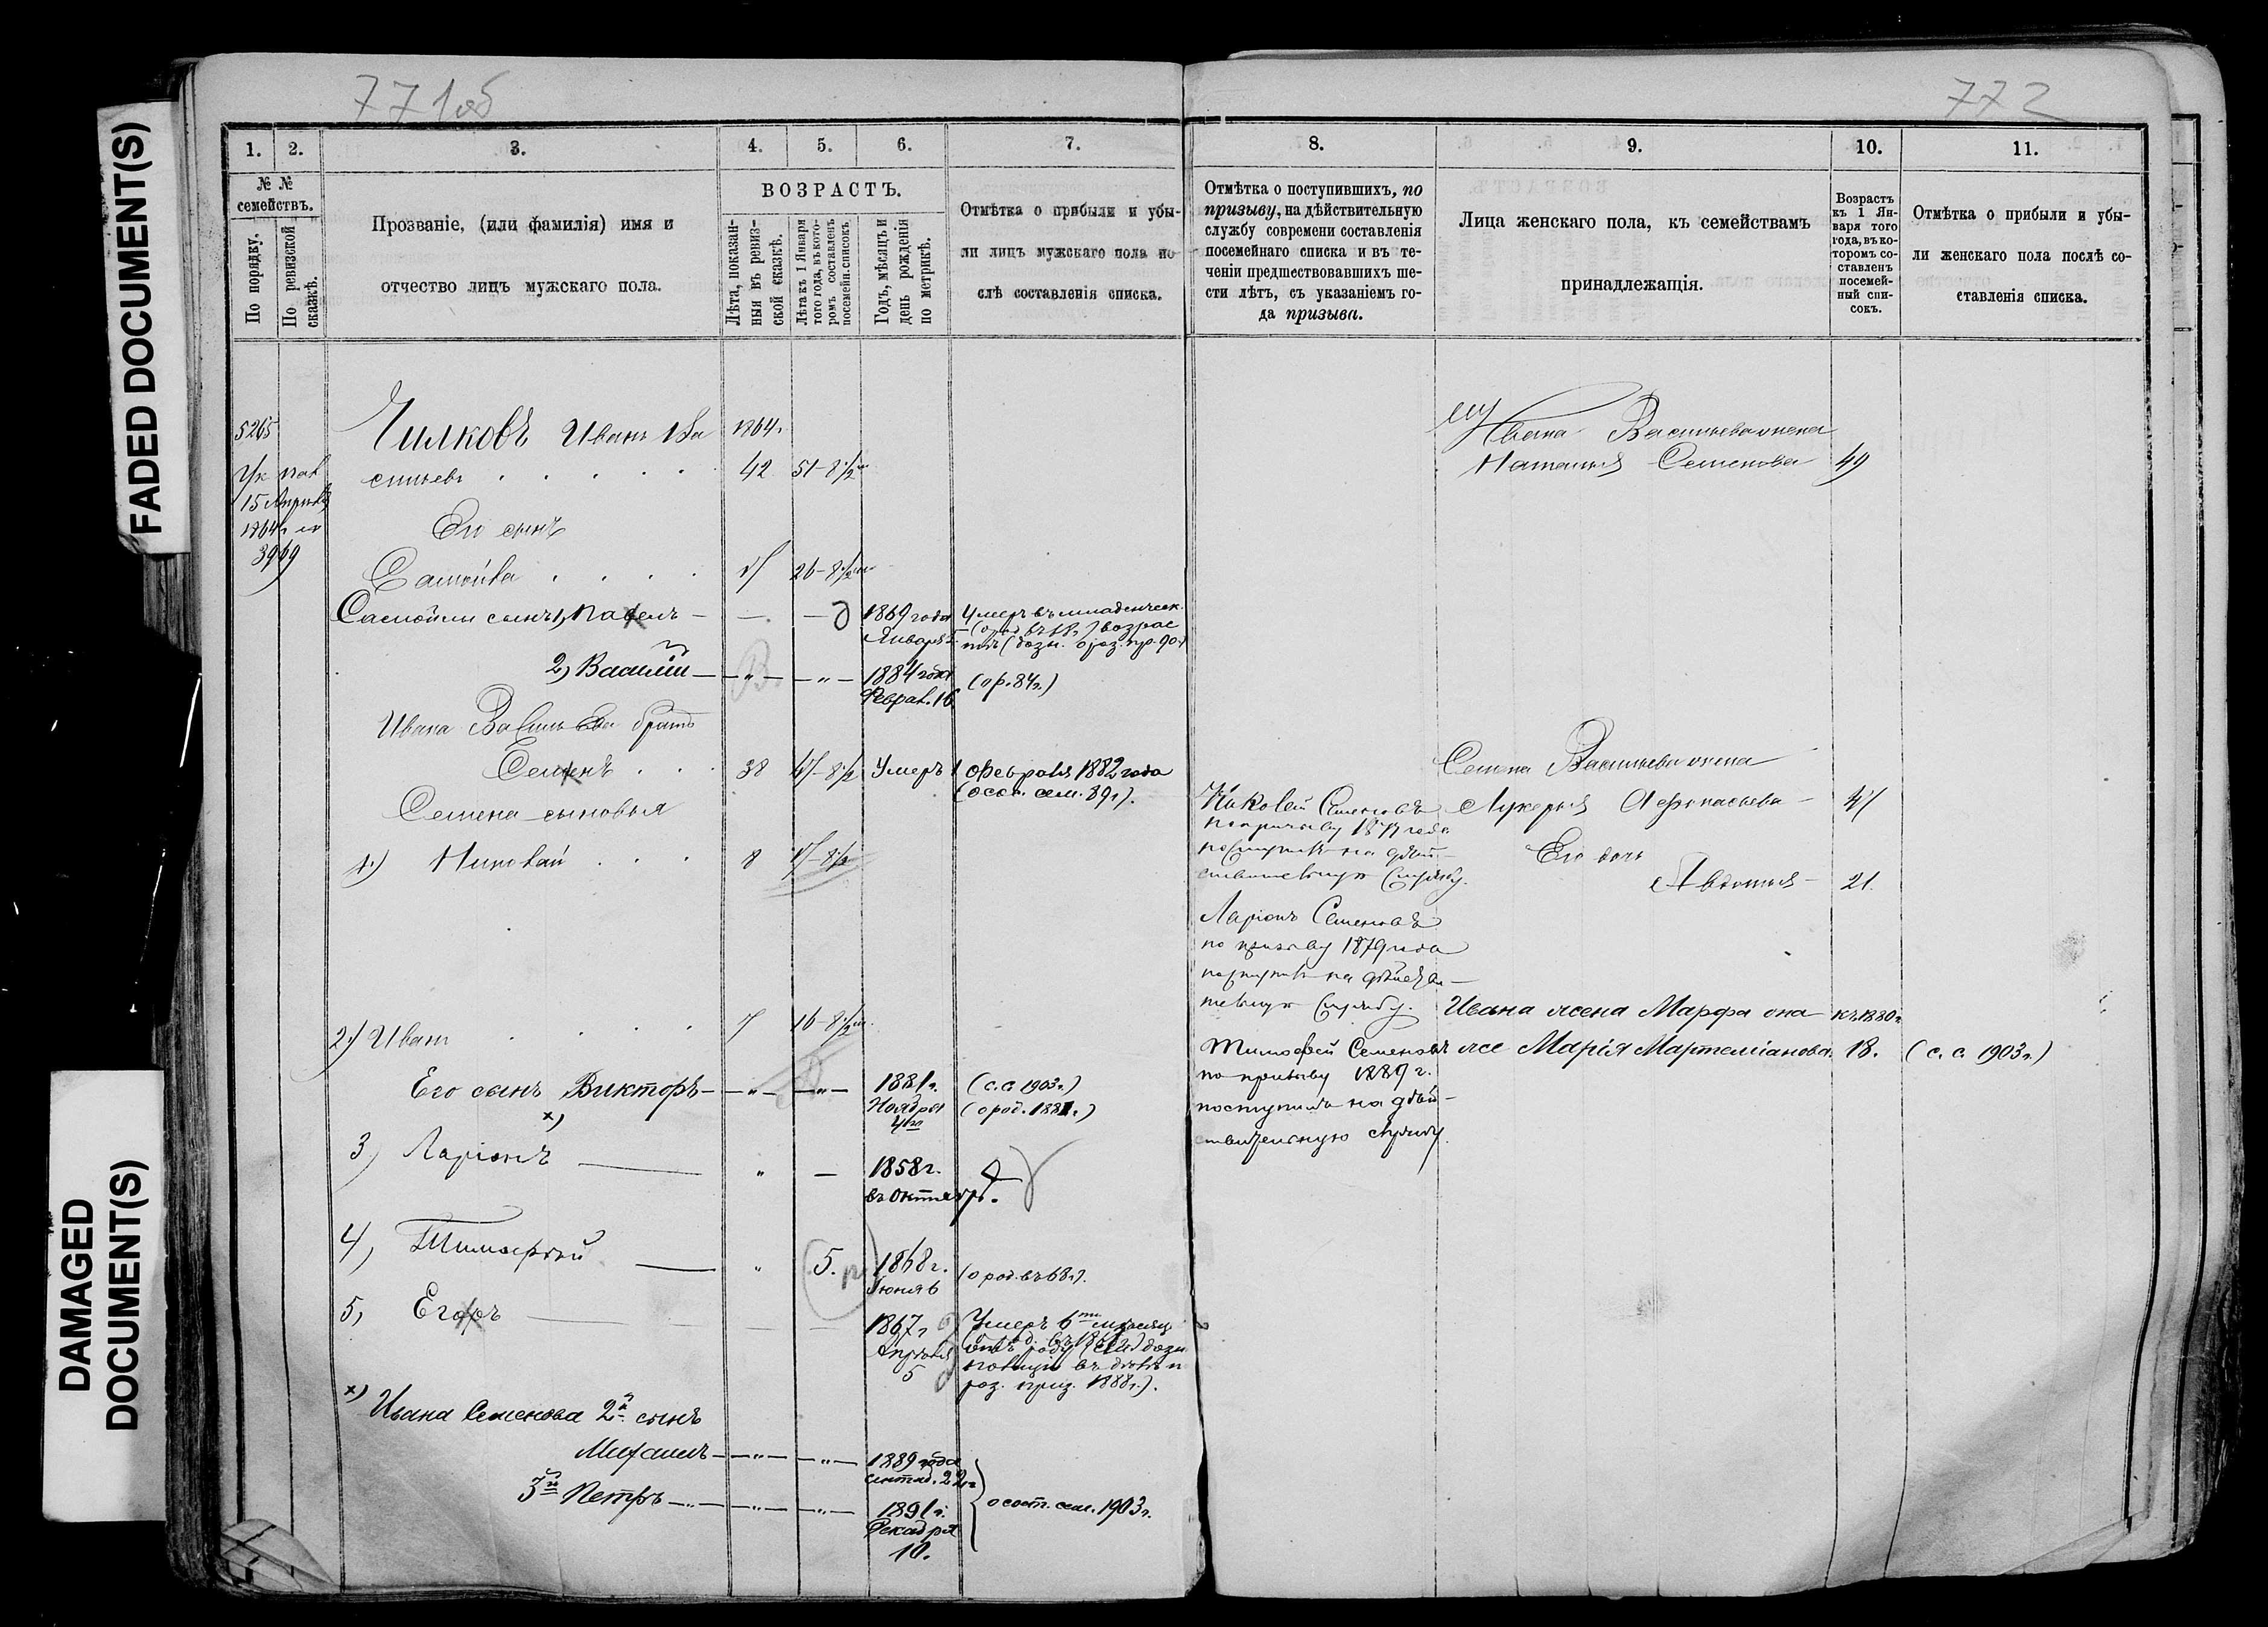 FADED DOCUMENT(S)
DAMAGED
DOCUMENT(S)
771об
1. 2. 3. 4. 5. 6. 7.
№ №
семействъ.
По порядку.
По ревизской
сказкѣ.
Прозваніе, (или фамилія) имя и
отчество лицъ мужскаго пола.
ВОЗРАСТЪ.
Лѣта, показан-
ныя въ ревиз-
ской сказкѣ.
Лѣта къ 1 Января
того года, въ кото-
ромъ составленъ
посемейн. списокъ
Годъ, мѣсяцъ и
день рожденія
по метрикѣ.
Отмѣтка о прибыли и убы-
ли лицъ мужскаго пола по-
слѣ составленія списка.
5265
15 Апрѣля
1864г
3969
Чилковъ Иванъ Ва
сильевъ
1864г
42 51-8 1/2
Его сынъ
Самойла
26-8 1/2
Самойлы сынъ 1, Павелъ
1869 года
Января
Умеръ въ младенческ.
возрас
2) Василій
1884 года
Феврал. 16
(о р. 84г.)
Ивана Васильева братъ
Семенъ 38 47-8 1/2
Умеръ 1 февраля 1882 года
(о сост. сем. 89г).
Семена сыновья
1) Николай 8 17-8 1/2
2) Иванъ 7 16-8 1/2
Его сынъ Викторъ
1881г.
Ноября
(с. с. 1903г.)
(о род. 1881г.)
x)
3) Ларіонъ
1858г.
въ Октябрѣ.
4) Тимофей
5.
1868г.
Іюня 6
(о род. въ 68г).
5) Егоръ
1867г
Апрѣля
5
Умеръ 6ти мѣсяц
роз. приз. 1888г.).
x) Ивана Семенова 2й сынъ
Михаилъ
1889 года
сентяб. 22
3й Петръ
1891г.
Декабря
10.
о сост. сем. 1903г.
772
8. 9. 10. 11.
Отмѣтка о поступившихъ, по
призыву, на дѣйствительную
службу современи составленія
посемейнаго списка и въ те-
ченіи предшествовавшихъ ше-
сти лѣтъ, съ указаніемъ го-
да призыва.
Лица женскаго пола, къ семействамъ
принадлежащія.
Возрастъ
къ 1 Ян-
варя того
года, въ ко-
торомъ со-
ставленъ
посемей-
ный спи-
сокъ.
Отмѣтка о прибыли и убы-
ли женскаго пола послѣ со-
ставленія списка.
Ивана Васильева жена
Наталья Семенова 49
Семена Васильева жена
Лукерья Афонасьева 47
Его дочь
Авдотья 21.
Николай Семеновъ
по призыву 1877 года
поступилъ на дѣй-
ствительную службу.
Ларіонъ Семеновъ
по призыву 1879 года
поступилъ на дѣйстви-
тельную службу.
Ивана жена Марфа она къ 1880г
же Марія Мартеміанова. 18. (с. с. 1903г.)
Тимофей Семеновъ
по призыву 1889 г.
поступилъ на дѣй-
ствительную службу.